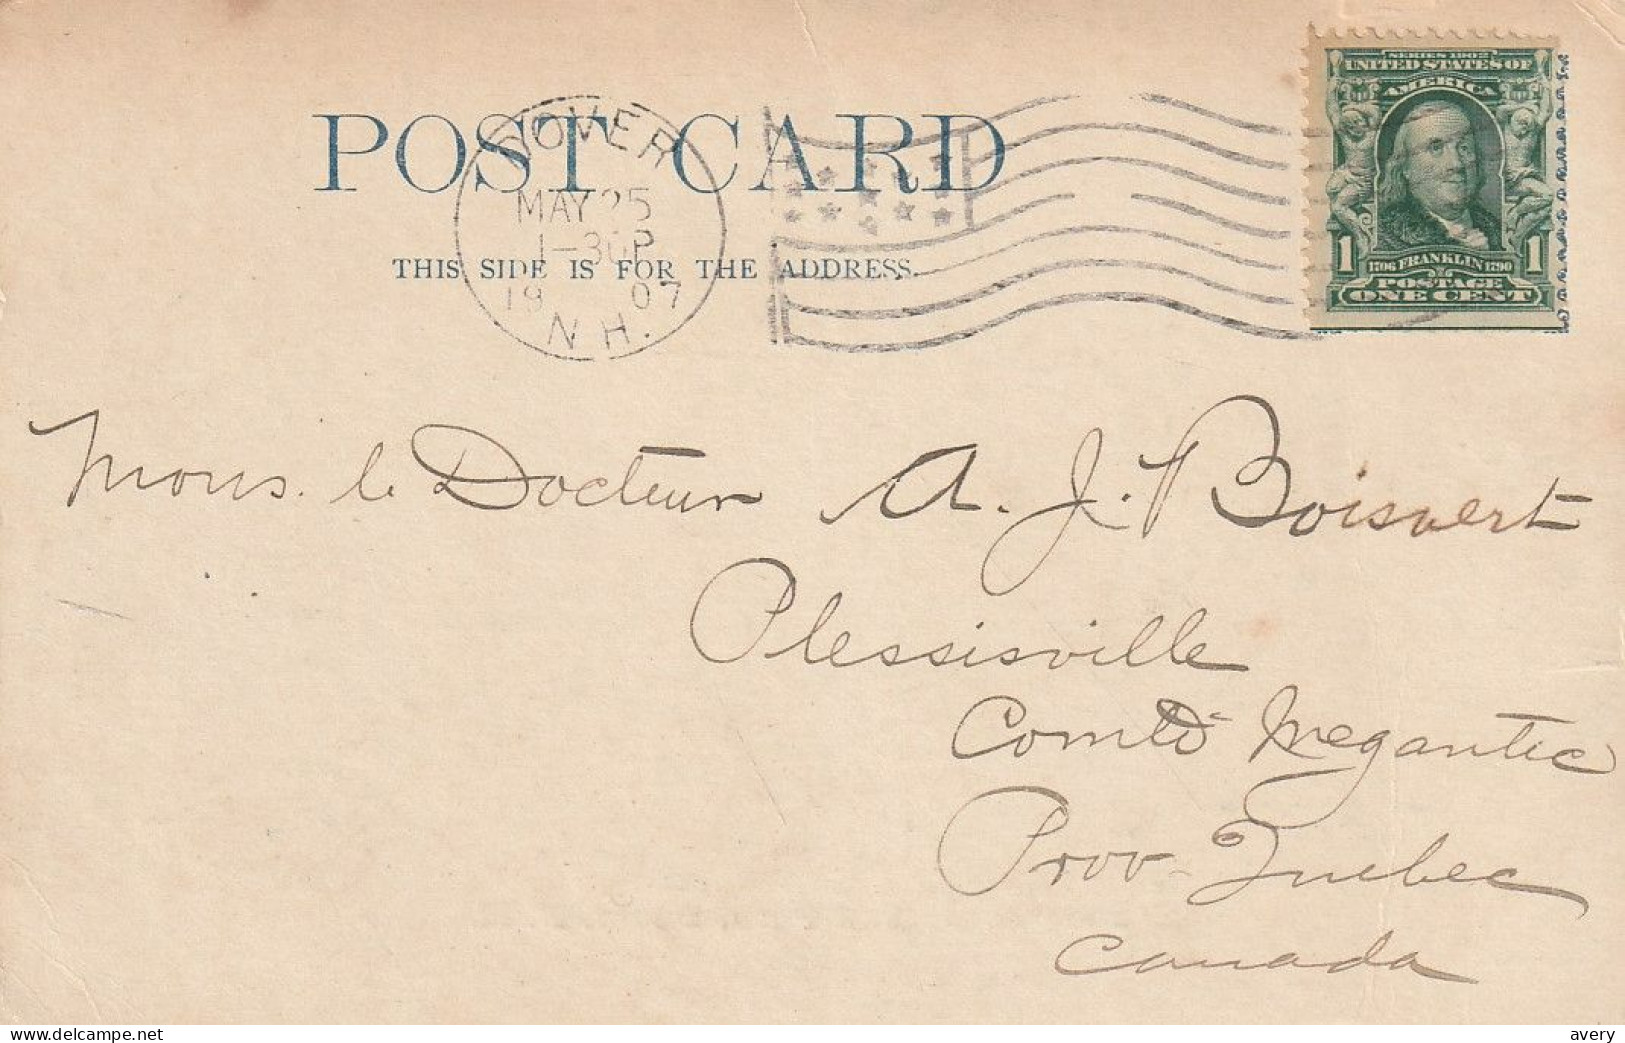 POST CARD
THIS SIDE IS FOR THE ADDRESS.
DOVER
MAY 25
1-30P
19 07
N.H.
SERIES 1902
UNITED STATES OF
AMERICA
1 1
1706 FRANKLIN 1790
POSTAGE
ONE CENT
Mons. le Docteur A. J. Boisvert
Plessisville
Comté Megantic
Prov. Quebec
Canada
www.delcampe.net
avery